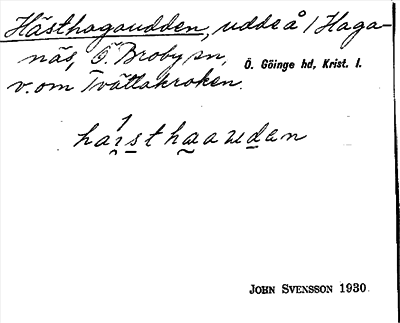 Hästhagaudden, udde å 1 Haga-
näs, Ö. Broby sn, Ö. Göinge hd, Krist. l.
v. om Tvättakroken.
JOHN SVENSSON 1930.